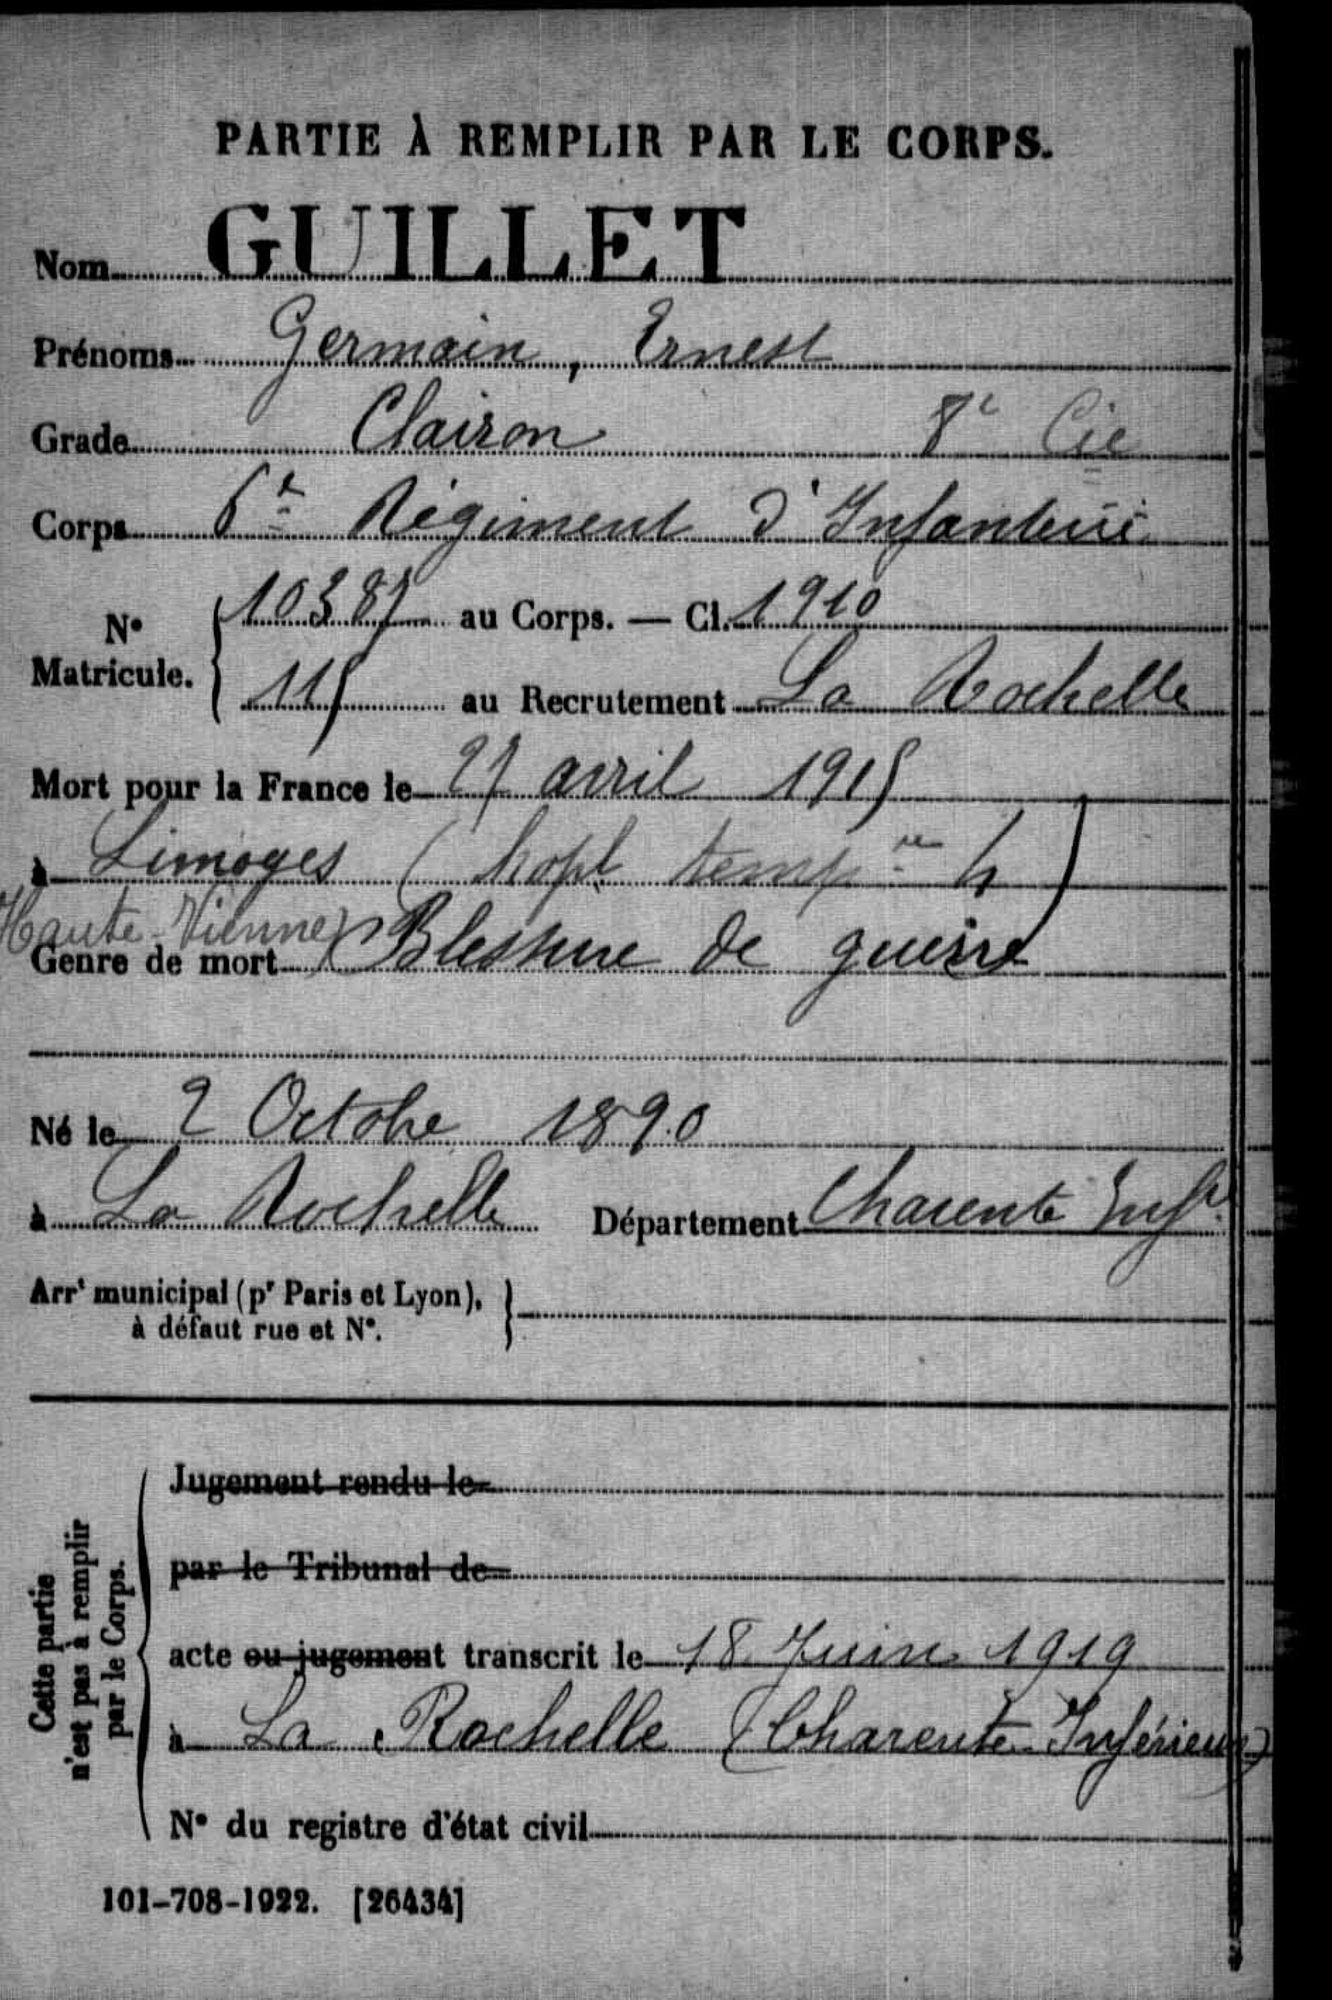 PARTIE À REMPLIR PAR LE CORPS.
Nom GUILLET
Prénoms Germain, Ernest
Grade Clairon 8e Cie
Corps 6e Régiment d'Infanterie
N° Matricule. { 10387 au Corps. — Cl. 1910
115 au Recrutement La Rochelle
Mort pour la France le 27 avril 1915
à Limoges (hopl tempre 4)
Haute-Vienne)
Genre de mort Blessure de guerre
Né le 2 Octobre 1890
à La Rochelle Département Charente Infre
Arrt municipal (pr Paris et Lyon), }
à défaut rue et N°.
Cette partie
n'est pas à remplir
par le Corps.
Jugement rendu le
par le Tribunal de
acte ou jugement transcrit le 18 Juin 1919
à La Rochelle (Charente-Inférieure)
N° du registre d'état civil
101-708-1922. [26434]